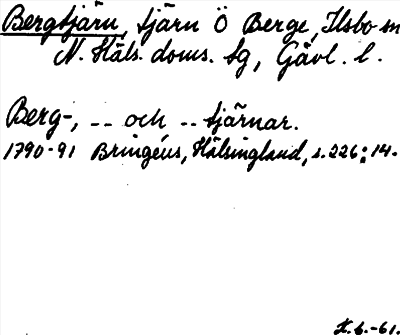 Bergtjärn, tjärn Ö Berge, Ilsbo sn
N. Häls. doms. sg, Gävl. l.
Berg-, -- och -- tjärnar.
1790-91 Bringéus, Hälsingland, s. 226:14.
H. b. -61.